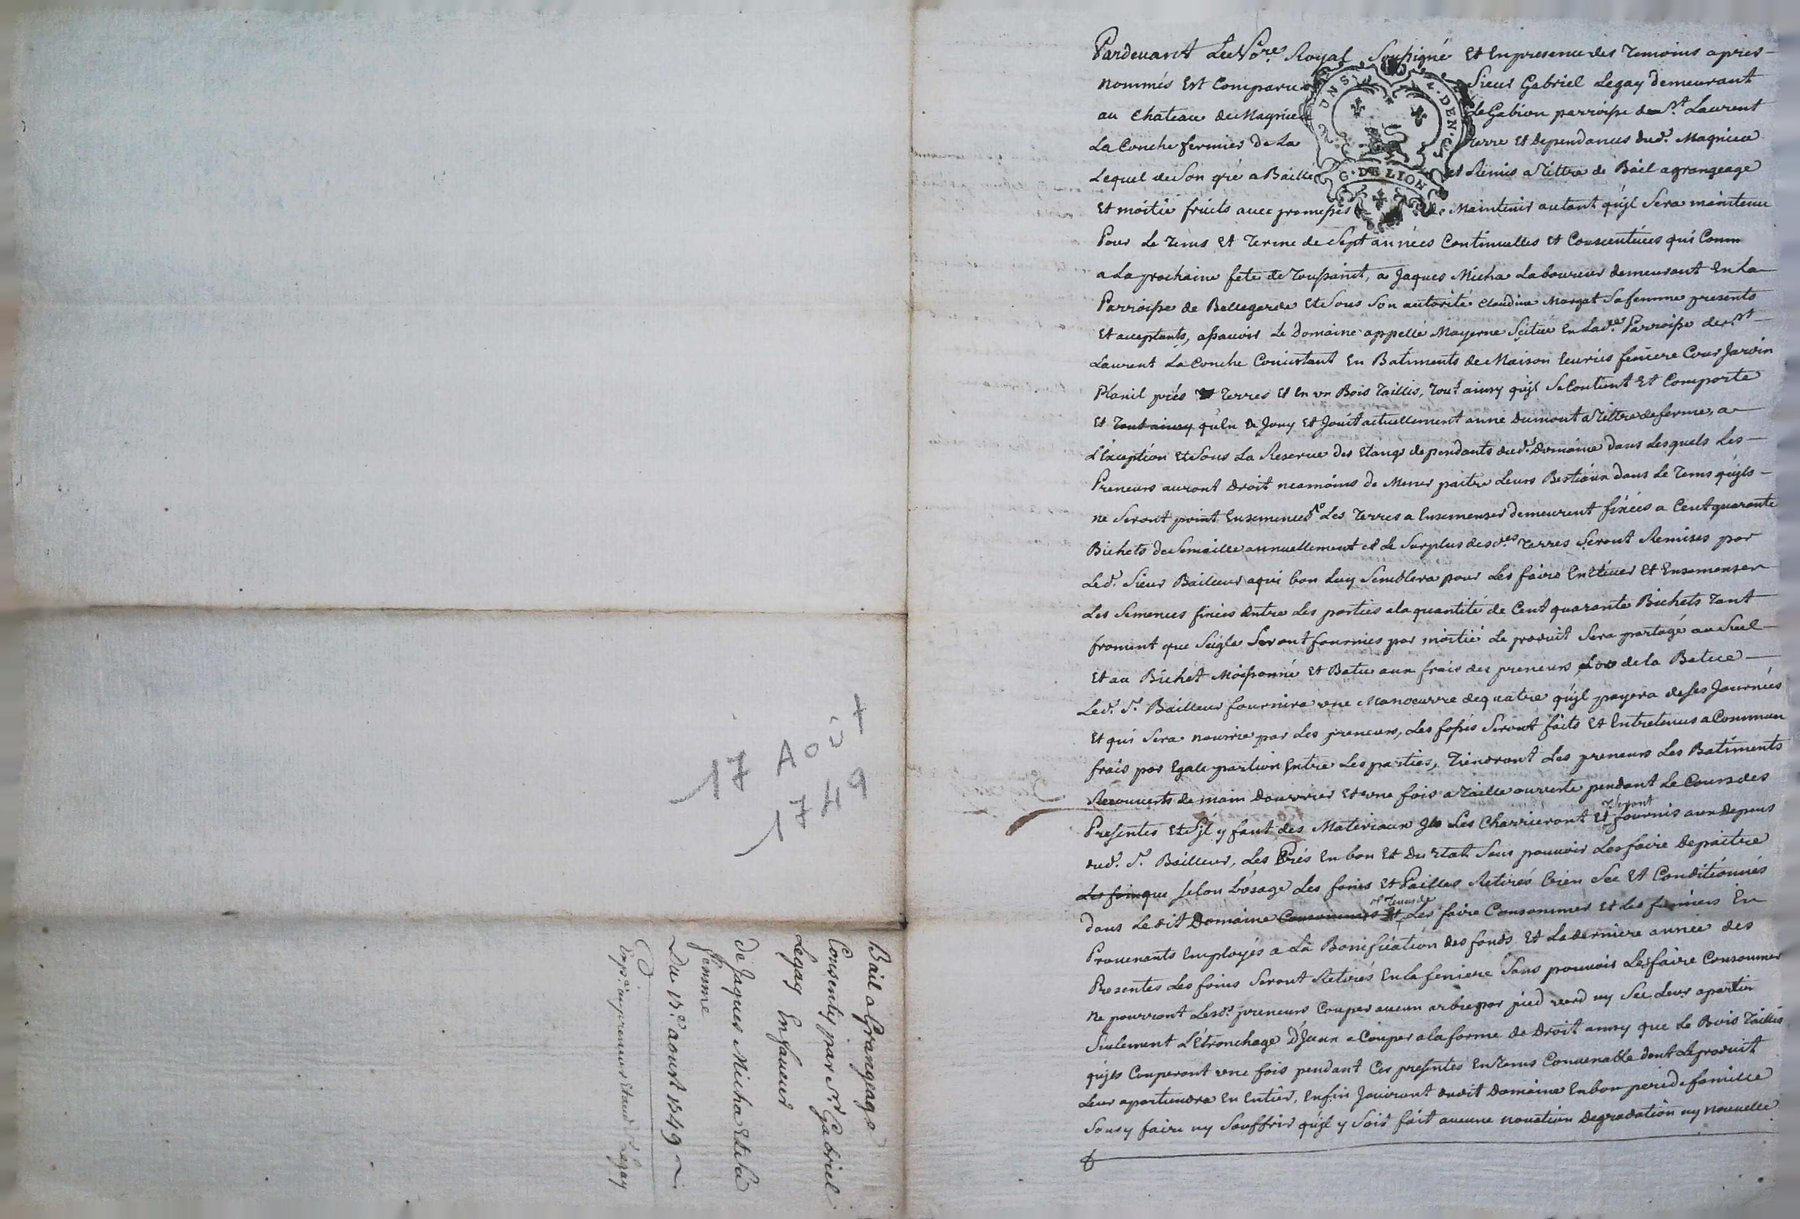 Pardevant Le No.re Royal Soussigné Et En presence des Temoins apres
nommés Est Comparu Sieur Gabriel Legay demeurant
au Chateau de Magnieu Le Gabion parroisse de St. Laurent
La Conche fermier De La Terre Et Dependances dud. Magnieu
Lequel de Son gré a Baillé et Remis a Tittre de Bail a grangeage
Et moitié fruits avec promesses de Maintenir autant qu'jl Sera maintenu
Pour Le Tems Et Terme de Sept années Continuelles Et Consecutives qui Comm
a La prochaine fete de Toussaint, a Jaques Micha Laboureur demeurant En La
Parroisse de Bellegarde Et Sous Son autorité Claudine Margat Sa femme presents
Et acceptants, assavoir Le Domaine appellé Mayerne Scitué En Lad.e Parroisse de St
Laurent La Conche Consistant En Batiments de Maison Ecuries feniere Cour Jardin
Planil prés Terres Et En vn Bois Taillis, Tout ainsy qu'jl Se Contient Et Comporte
Et Tout ainsy qu'En a Jouy Et Jouit actuellement anne Dumont a Tittre de ferme, a
L'Exception Et Sous La Reserve des Etangs dependants dud. Domaine dans Lesquels Les
Preneurs auront Droit neamoins de Mener paitre Leurs Bestiaux dans Le Tems qu'jls
ne Seront point Ensemencés Les Terres a Ensemenser demeurent fixées a Cent quarante
Bichets de Semaille annuellement et Le Surplus desd.es Terres Seront Remises par
Led. Sieur Bailleur a qui bon Luy Semblera pour Les faire Cultiver Et Ensemenser
Les Semences fixées Entre Les parties a la quantité de Cent quarante Bichets Tant
froment que Seigle Seront fournies par moitié Le produit Sera partagé au Suel
Et au Bichet Moissonné Et Batu aux frais des preneurs, Lors de la Bature
Led. Sr. Bailleur fournira vne Manoeuvre de quatre qu'jl payera de Ses Journées
Et qui Sera nourrie par Les preneurs, Les fossés Seront faits Et Entretenus a Commun
frais par Egale partion Entre Les parties, Tiendront Les preneurs Les Batiments
Recouverts de main Douvrier Et vne fois a Taille ouverte pendant Le Cours des
Presentes Et S'jl y faut des Materiaux jls Les Charrieront Et Seront fournis aux depens
dud. Sr. Bailleur, Les Prés En bon Et Du Etat Sans pouvoir Les faire Depaitre
Les foins que Selon L'vsage Les foins Et Pailles Retirés bien Sec Et Conditionnés
dans Le dit Domaine Consommés Et et Tenus de Les faire Consommer Et Les fumiers En
Provenants Employés a La Bonification des fonds Et La derniere année des
Presentes Les foins Seront Retirés En la feniere Sans pouvoir Les faire Consommer
Ne pourront Lesd. preneurs Couper aucun arbre par pied verd ny Sec Leur apartin
Seulement L'Etronchage D'jceux a Couper a la forme de Droit ainsy que Le Bois Taillis
qu'jls Couperont vne fois pendant Ces presentes En Tems Convenable dont Le produit
Leur apartiendra En Entier. Enfin Jouiront dudit Domaine En bon pere de famille
Sans y faire ny Souffrir qu'jl y Soit fait aucune novation Degradation ny nouvelle
G. DE LION
17 AOUT
1749
Bail a Grangeage
Consenty par Sr Gabriel
Legay En faveur
De Jaques Micha Et Sa
femme
Du 17.e aoust 1749
Exp.e au preneur Et aud. Legay